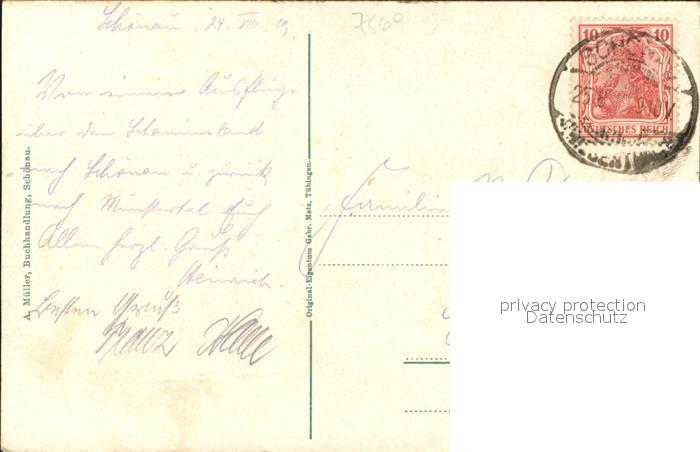 Schönau, 24. VIII 19
7660
Von einem Ausfluge
über den Schauinsland
nach Schönau u. zurück
nach Münstertal Euch
Allen herzl. Grüß
Heinrich.
Besten Gruß
Franz
A. Müller, Buchhandlung, Schönau.
Original-Eigentum Gebr. Metz, Tübingen.
10 10
DEUTSCHES REICH
SCHÖNAU
Familie
privacy protection
Datenschutz